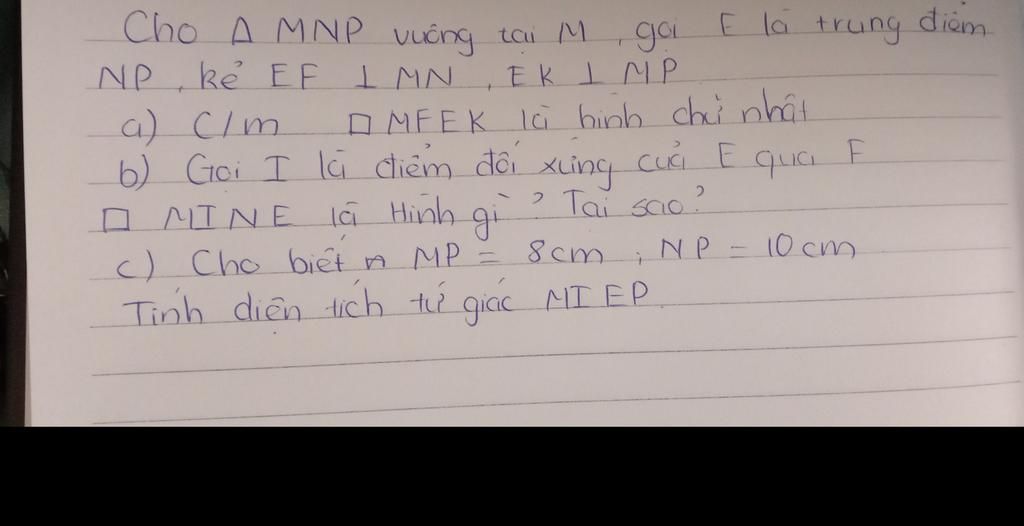 Cho Δ MNP vuông tại M, gọi E là trung điểm
NP, kẻ EF ⊥ MN, EK ⊥ MP
a) C/m □ MFEK là hình chữ nhật
b) Gọi I là điểm đối xứng của E qua F
□ MINE là Hình gì? Tại sao?
c) Cho biết MP = 8cm; NP = 10cm
Tính diện tích tứ giác MIEP